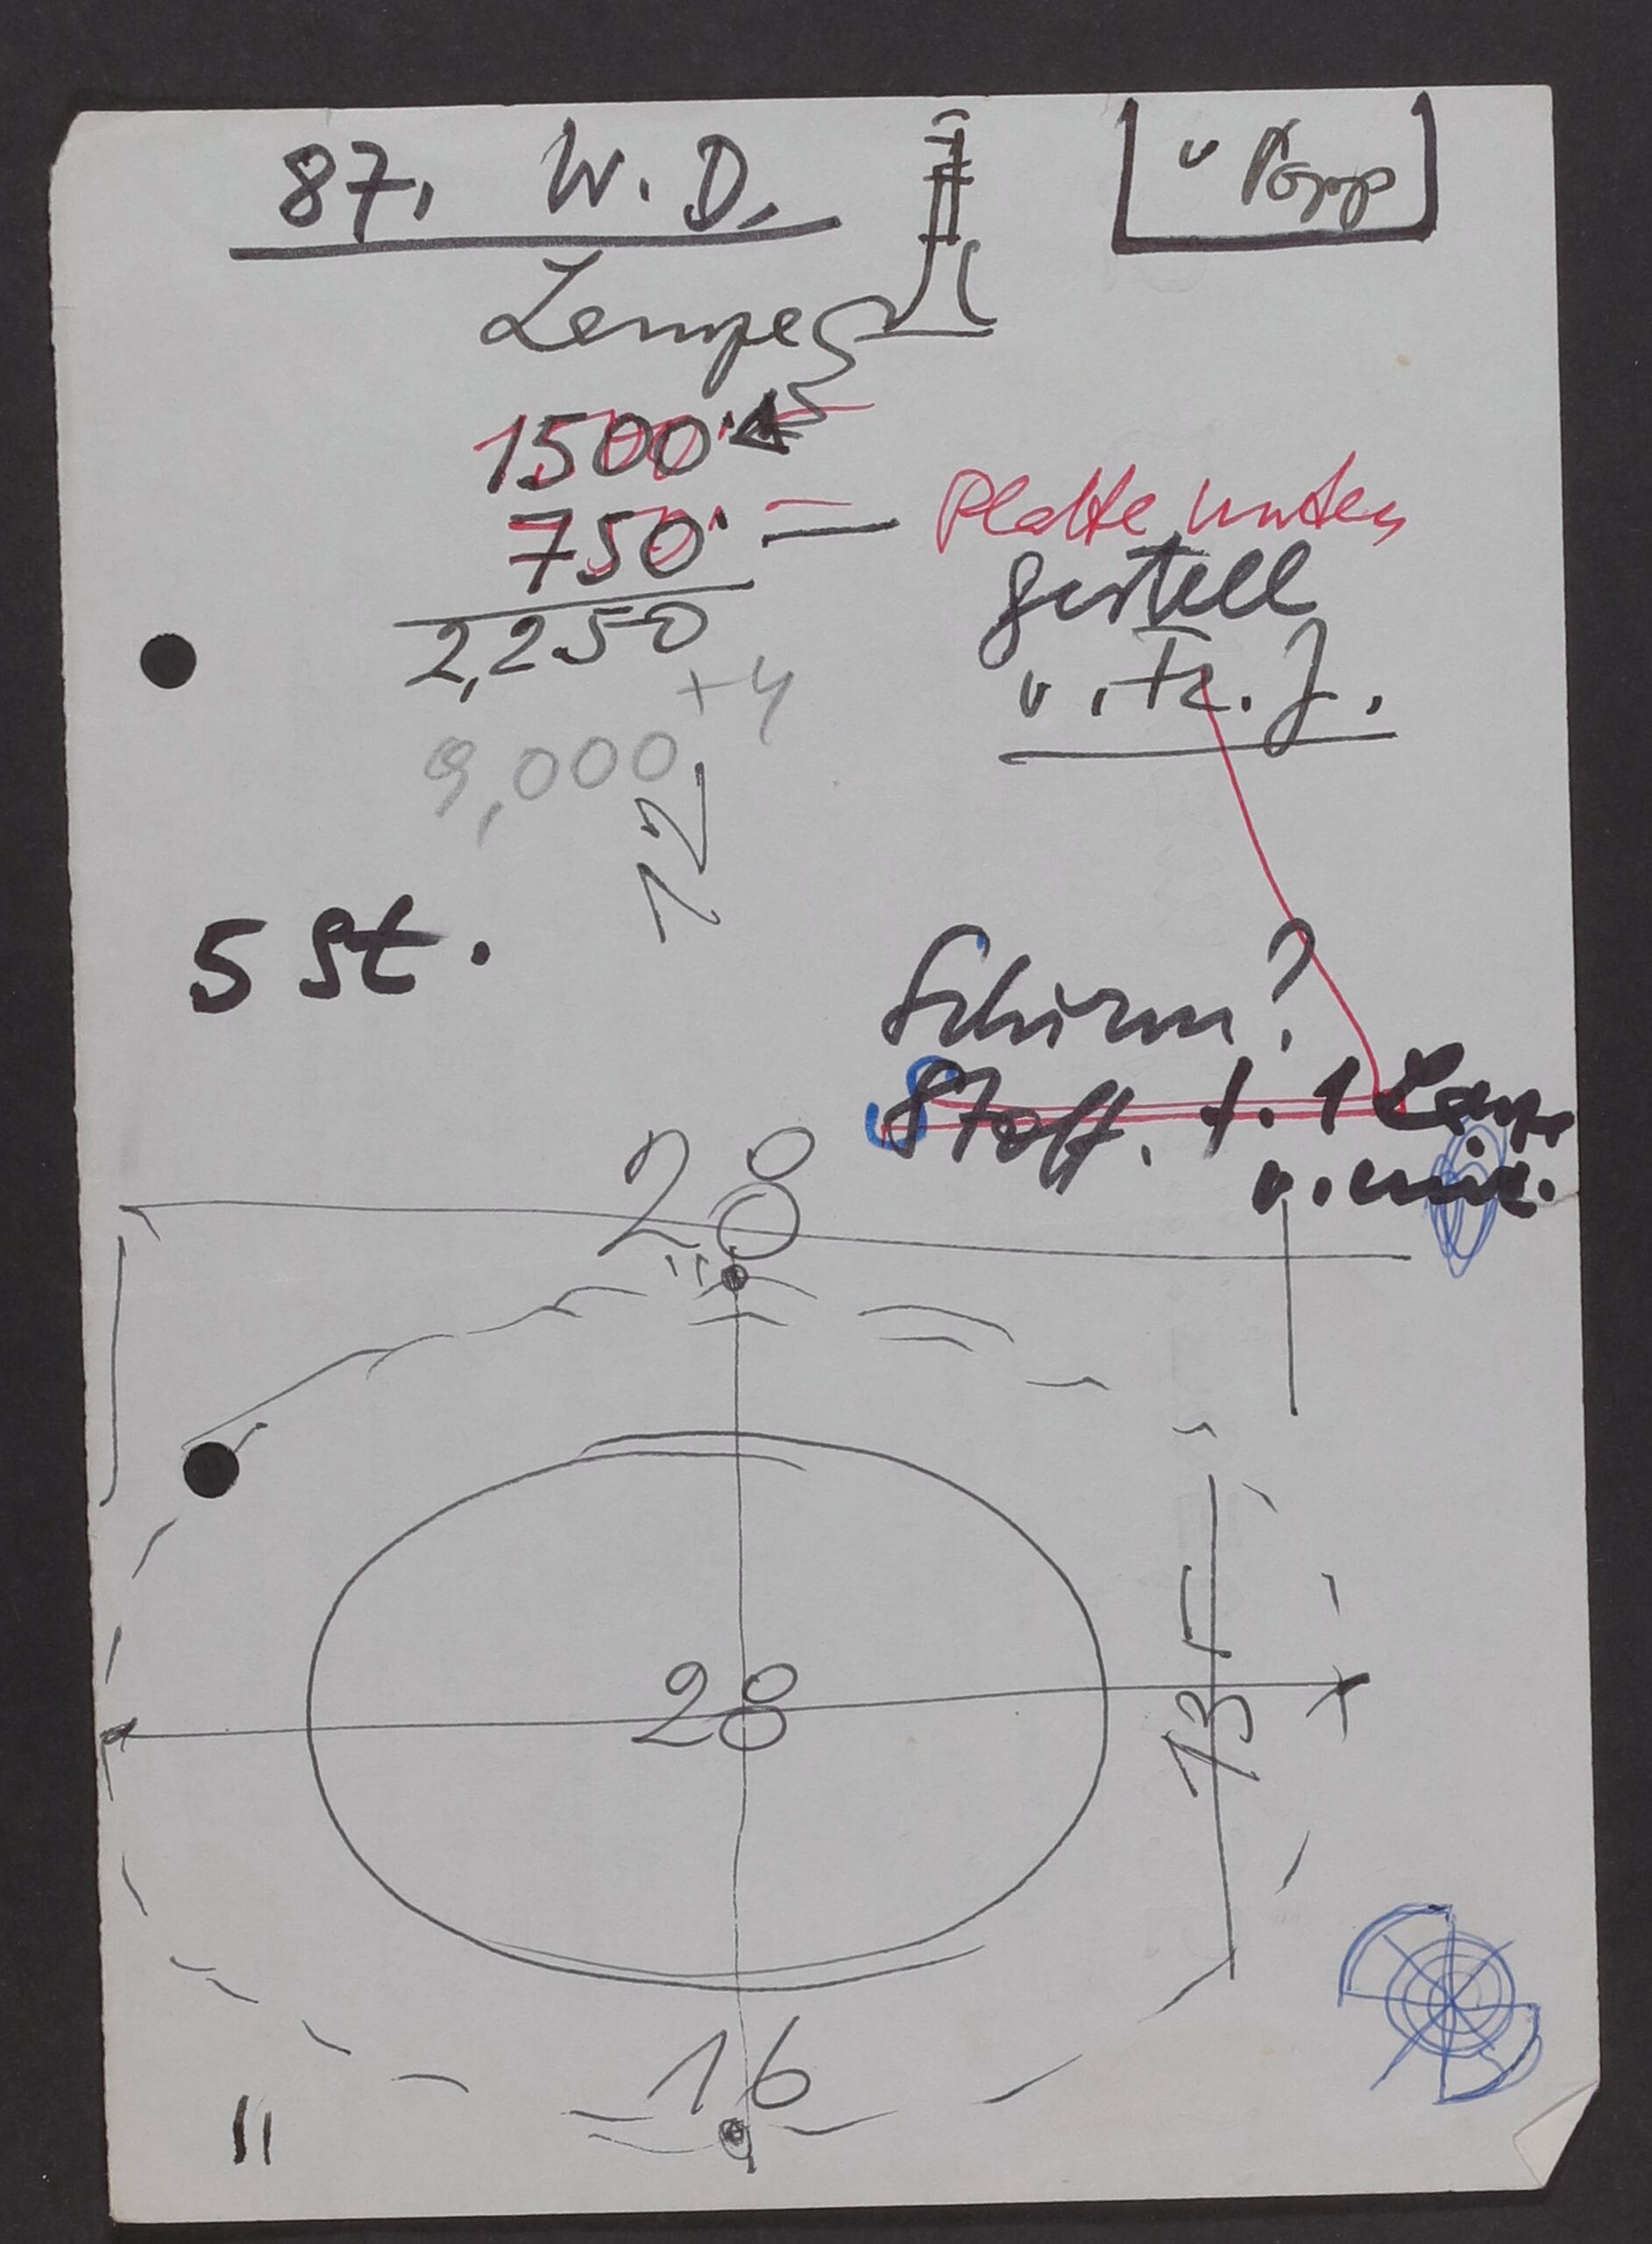 87. W. D.
v Popp
Lampe
1500.
750. = Platte unten
Gestell
2,250
v. Fr. J.
+4
9,000
12
5 St.
Schirm?
Stoff. f. 1 Lamp.
v. mir.
28
28
135
16
11